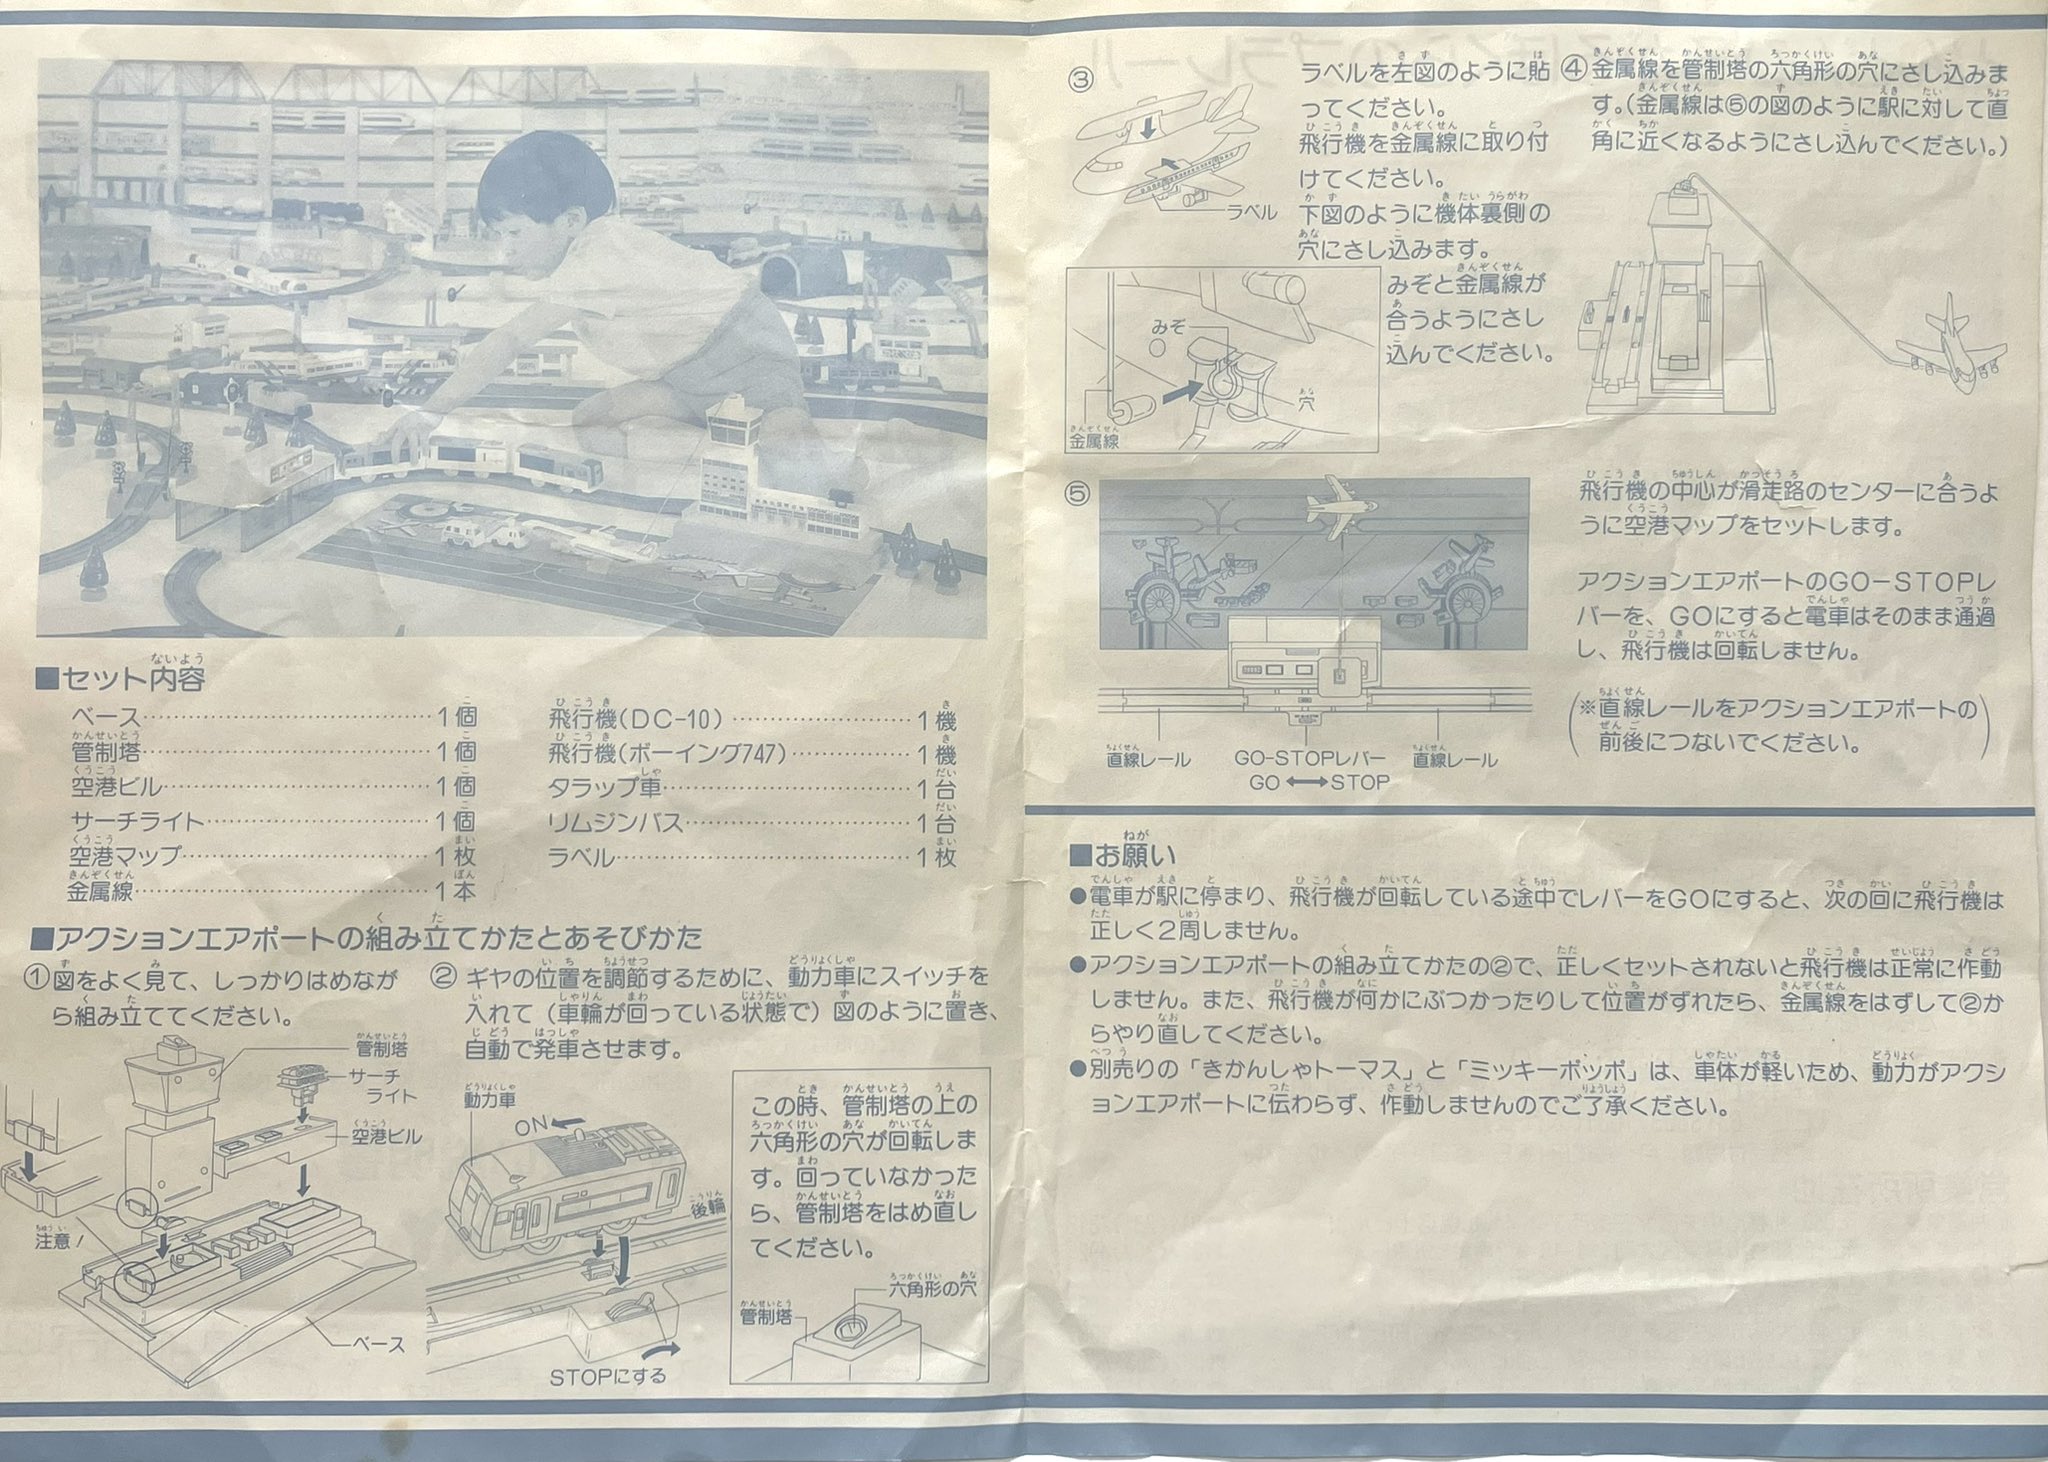 ■セット内容
ベース……1個
管制塔……1個
空港ビル……1個
サーチライト……1個
空港マップ……1枚
金属線……1本
飛行機(DC-10)……1機
飛行機(ボーイング747)……1機
タラップ車……1台
リムジンバス……1台
ラベル……1枚
■アクションエアポートの組み立てかたとあそびかた
①図をよく見て、しっかりはめなが
ら組み立ててください。
管制塔
サーチ
ライト
空港ビル
注意!
ベース
②ギヤの位置を調節するために、動力車にスイッチを
入れて(車輪が回っている状態で)図のように置き、
自動で発車させます。
動力車
ON
後輪
STOPにする
この時、管制塔の上の
六角形の穴が回転しま
す。回っていなかった
ら、管制塔をはめ直し
てください。
六角形の穴
管制塔
③
ラベルを左図のように貼
ってください。
飛行機を金属線に取り付
けてください。
下図のように機体裏側の
穴にさし込みます。
みぞと金属線が
合うようにさし
込んでください。
ラベル
みぞ
穴
金属線
④金属線を管制塔の六角形の穴にさし込みま
す。(金属線は⑤の図のように駅に対して直
角に近くなるようにさし込んでください。)
⑤
直線レール
GO-STOPレバー
GO⟷STOP
直線レール
飛行機の中心が滑走路のセンターに合うよ
うに空港マップをセットします。
アクションエアポートのGO-STOPレ
バーを、GOにすると電車はそのまま通過
し、飛行機は回転しません。
(※直線レールをアクションエアポートの
前後につないでください。)
■お願い
●電車が駅に停まり、飛行機が回転している途中でレバーをGOにすると、次の回に飛行機は
正しく2周しません。
●アクションエアポートの組み立てかたの②で、正しくセットされないと飛行機は正常に作動
しません。また、飛行機が何かにぶつかったりして位置がずれたら、金属線をはずして②か
らやり直してください。
●別売りの「きかんしゃトーマス」と「ミッキーポッポ」は、車体が軽いため、動力がアクシ
ョンエアポートに伝わらず、作動しませんのでご了承ください。